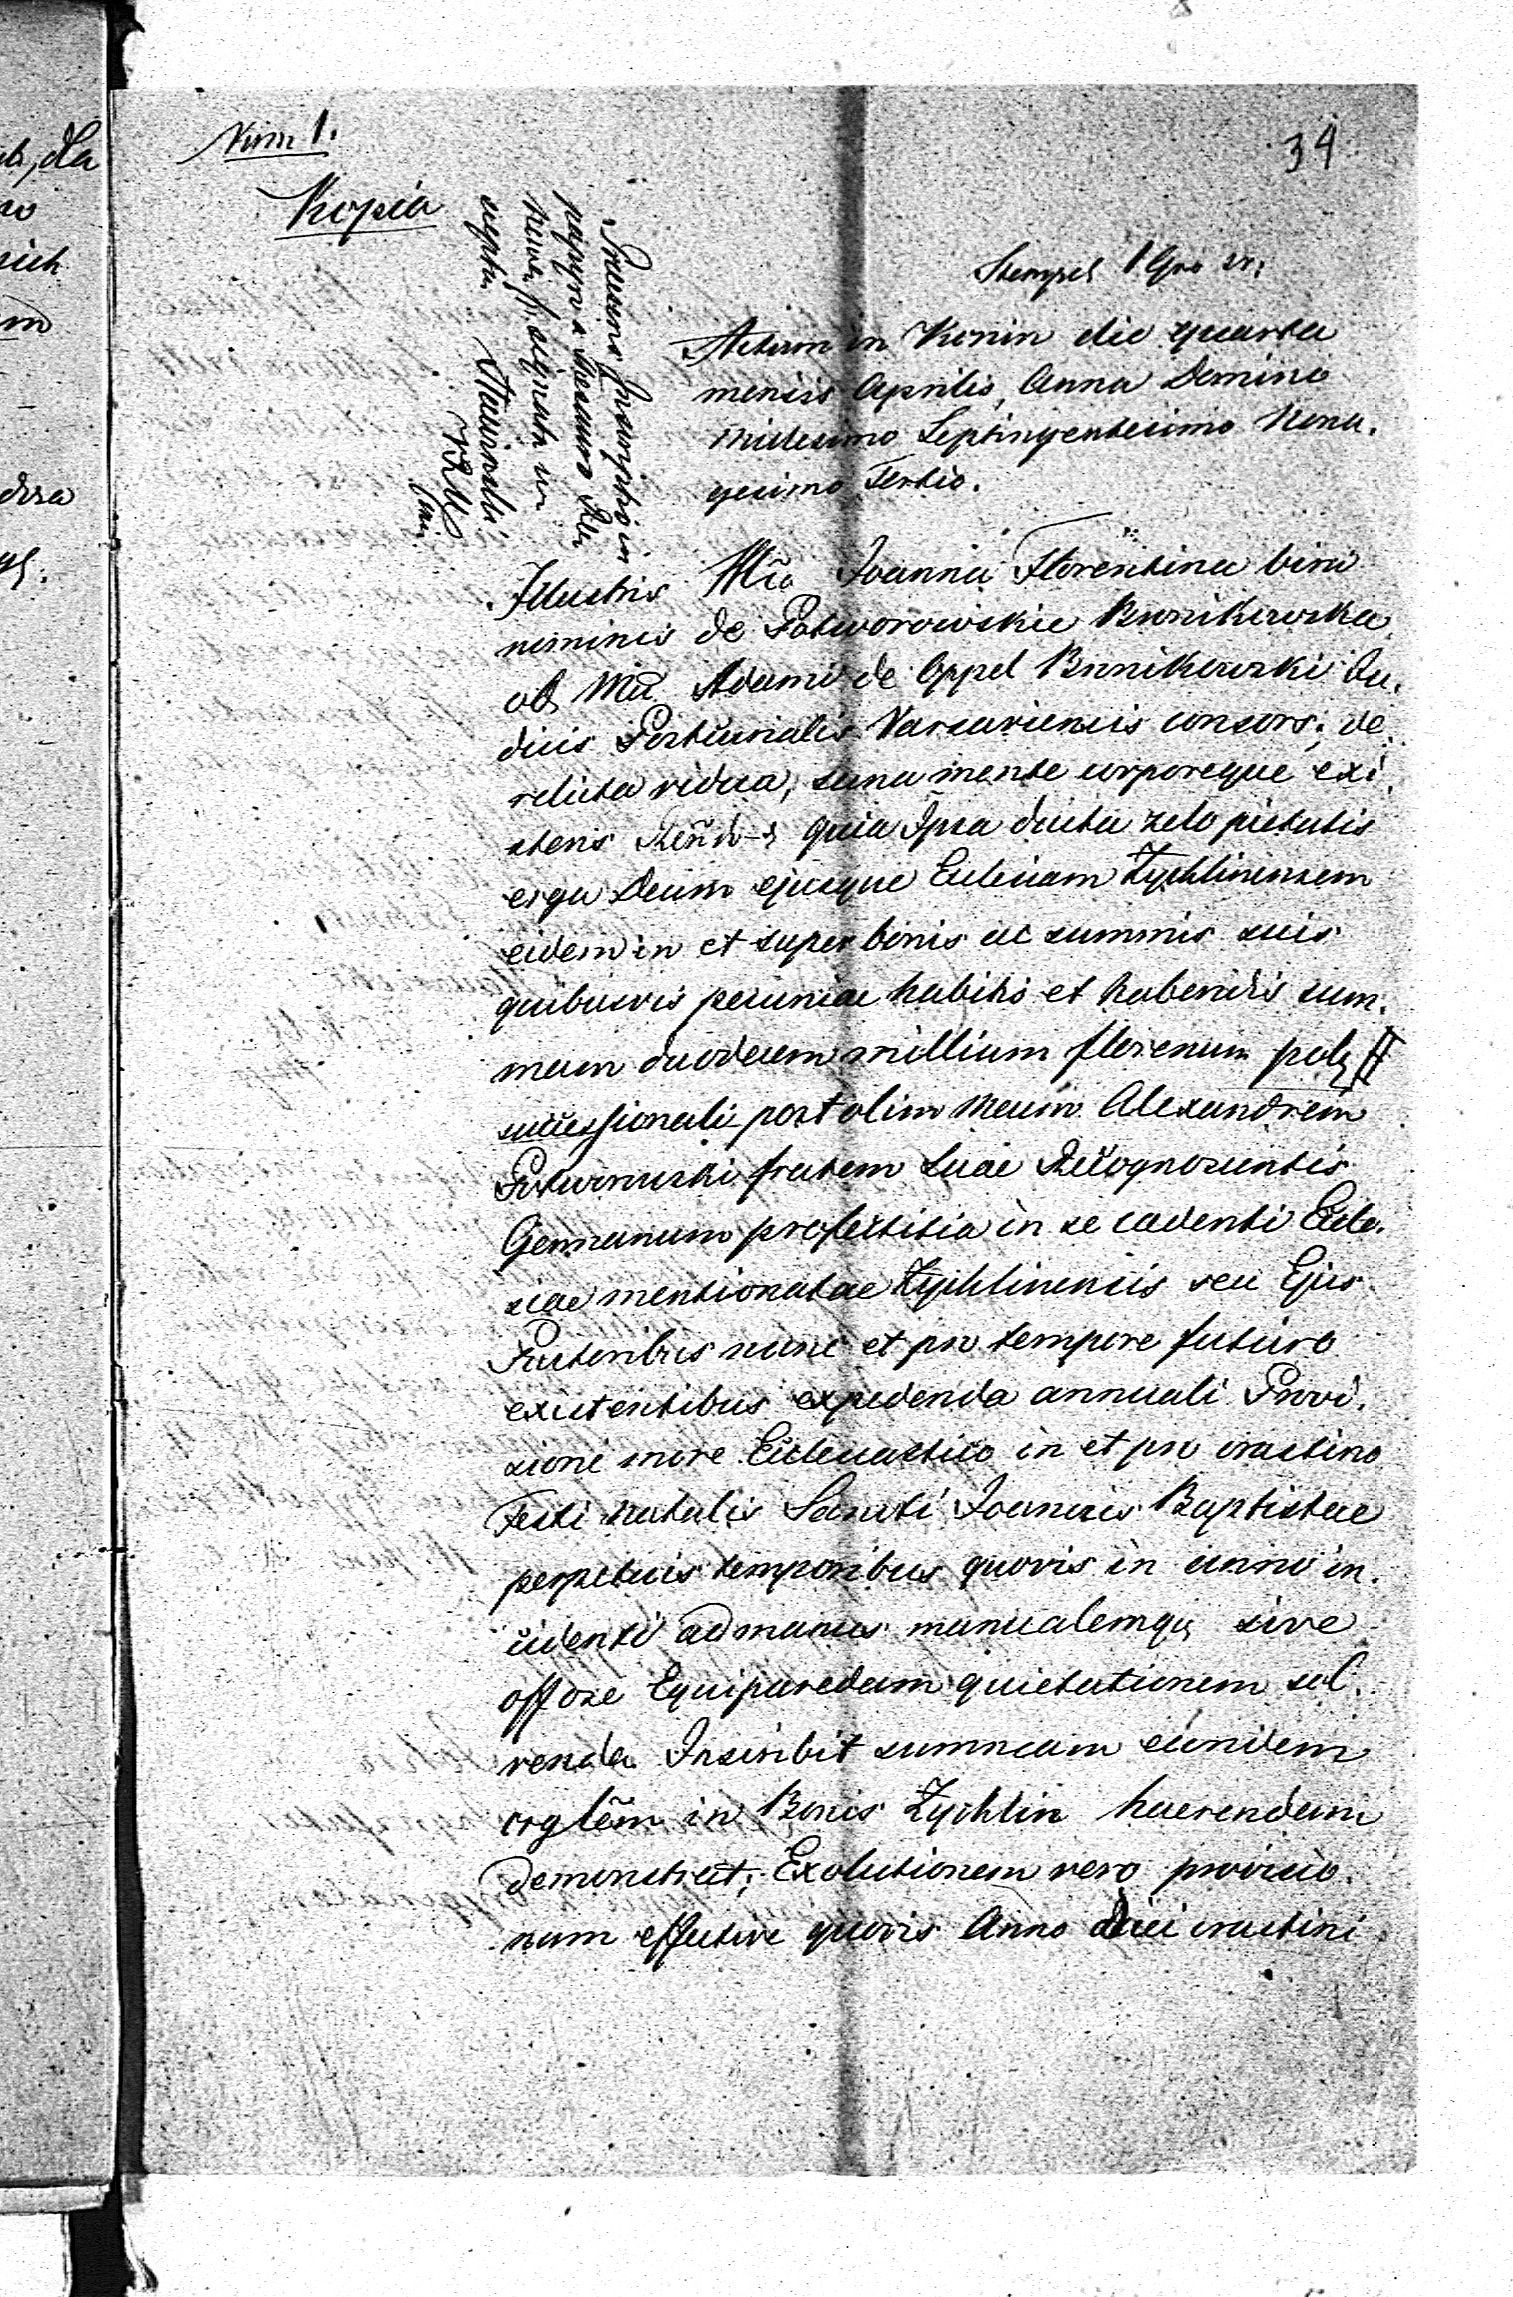 Num 1.
34
Kopia
Stempel 1 Gro sr.
Praesens Inscriptio in
papyro a Thesauro Rei
signata
suscepta
Actum in Konin die quarta
mensis Aprilis, Anno Domino
Millesimo Septingentesimo Nona.
gesimo Tertio.
Illustris Mta Joanna Florentina bini
nominis de Potworowskie Bronikowska
olim Mci Adami de Oppel Bronikowski Ju.
dicis Varsaviensis consors; de
relicta vidua, sana mente corporeque exi
stens quia Ipsa ducta zelo pietatis
erga Deum ejusque Eclesiam Zychlinensem
eidem in et super bonis ac summis suis
quibusvis pecuniae habitis et habendis sum.
mam duodecim millium florenum pol
successionali post olim Alexandrem
Potworowski fratrem suae Recognoscentis
Germanum profectitia in se cadenti Ecle.
siae mentionatae Zychlinensis seu Ejus
Pastoribus nunc et pro tempore futuro
existentibus expedenda annuali Provi.
sione more Eclesiastico in et pro crastino
Festi natalis Sancti Joannis Baptistae
perpetuis temporibus quovis in anno in.
cidenti ad manus manualemq sive
offose Equiparedam quietationem sol.
venda Inscribit summam eandem
in Bonis Zychlin haerendam
demonstrat; Exolutionem vero provisio.
num effective quovis Anno diei crastini